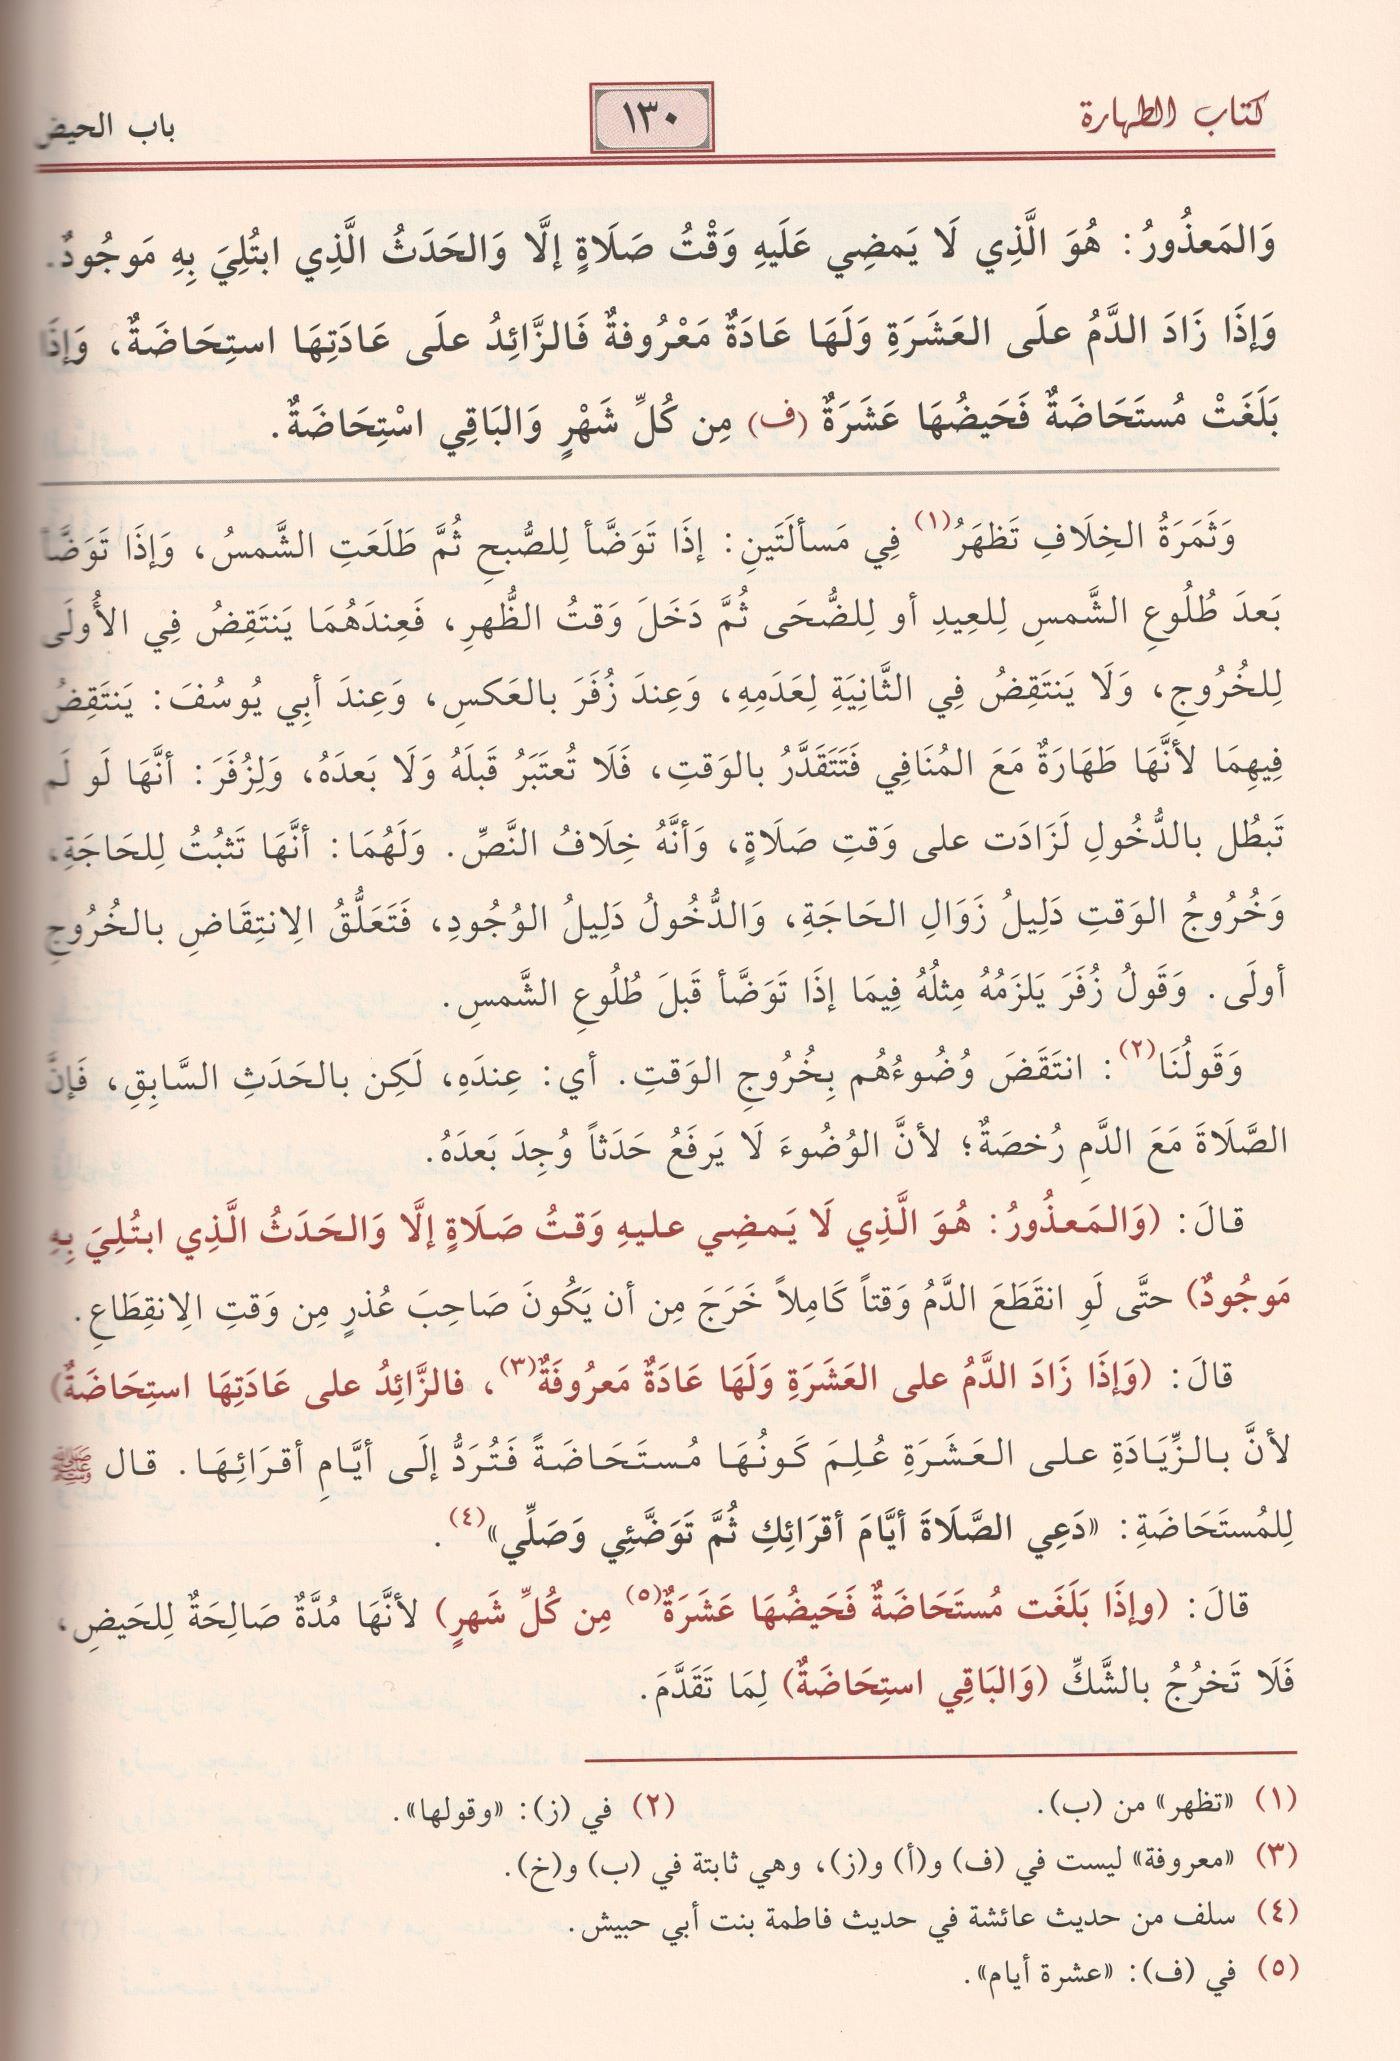 كتاب الطهارة ١٣٠ باب الحيض
وَالمَعذُورُ: هُوَ الَّذِي لَا يَمضِي عَلَيهِ وَقْتُ صَلَاةٍ إلَّا وَالحَدَثُ الَّذِي ابتُلِيَ بِهِ مَوجُودٌ.
وَإذَا زَادَ الدَّمُ علَى العَشَرَةِ وَلَهَا عَادَةٌ مَعْرُوفةٌ فَالزَّائِدُ علَى عَادَتِهَا استِحَاضَةٌ، وَإذَا
بَلَغَتْ مُستَحَاضَةٌ فَحَيضُهَا عَشَرَةٌ (ف) مِن كُلِّ شَهْرٍ وَالبَاقِي اسْتِحَاضَةٌ.
وَثَمَرَةُ الخِلَافِ تَظهَرُ(١) فِي مَسألَتَينِ: إذَا تَوَضَّأ لِلصُّبحِ ثُمَّ طَلَعَتِ الشَّمسُ، وَإذَا تَوَضَّأ
بَعدَ طُلُوعِ الشَّمسِ لِلعِيدِ أو لِلضُّحَى ثُمَّ دَخَلَ وَقتُ الظُّهرِ، فَعِندَهُمَا يَنتَقِضُ فِي الأُولَى
لِلخُرُوجِ، وَلَا يَنتَقِضُ فِي الثَّانِيَةِ لِعَدَمِهِ، وَعِندَ زُفَرَ بالعَكسِ، وَعِندَ أبِي يُوسُفَ: يَنتَقِضُ
فِيهِمَا لأنَّهَا طَهَارَةٌ مَعَ المُنَافِي فَتَتَقَدَّرُ بالوَقتِ، فَلَا تُعتَبَرُ قَبلَهُ وَلَا بَعدَهُ، وَلِزُفَرَ: أنَّهَا لَو لَم
تَبطُل بالدُّخُولِ لَزَادَت على وَقتِ صَلَاةٍ، وَأنَّهُ خِلَافُ النَّصِّ. وَلَهُمَا: أنَّهَا تَثبُتُ لِلحَاجَةِ،
وَخُرُوجُ الوَقتِ دَلِيلُ زَوَالِ الحَاجَةِ، وَالدُّخُولُ دَلِيلُ الوُجُودِ، فَتَعَلُّقُ الاِنتِقَاضِ بالخُرُوجِ
أولَى. وَقَولُ زُفَرَ يَلزَمُهُ مِثلُهُ فِيمَا إذَا تَوَضَّأ قَبلَ طُلُوعِ الشَّمسِ.
وَقَولُنَا(٢): انتَقَضَ وُضُوءُهُم بِخُرُوجِ الوَقتِ. أي: عِندَهِ، لَكِن بالحَدَثِ السَّابِقِ، فَإنَّ
الصَّلَاةَ مَعَ الدَّمِ رُخصَةٌ؛ لأنَّ الوُضُوءَ لَا يَرفَعُ حَدَثاً وُجِدَ بَعدَهُ.
قالَ: (وَالمَعذُورُ: هُوَ الَّذِي لَا يَمضِي عليهِ وَقتُ صَلَاةٍ إلَّا وَالحَدَثُ الَّذِي ابتُلِيَ بِهِ
مَوجُودٌ) حتَّى لَوِ انقَطَعَ الدَّمُ وَقتاً كَامِلاً خَرَجَ مِن أن يَكُونَ صَاحِبَ عُذرٍ مِن وَقتِ الاِنقِطَاعِ.
قالَ: (وَإذَا زَادَ الدَّمُ على العَشَرَةِ وَلَهَا عَادَةٌ مَعرُوفَةٌ(٣)، فالزَّائِدُ على عَادَتِهَا استِحَاضَةٌ)
لأنَّ بالزِّيَادَةِ على العَشَرَةِ عُلِمَ كَونُهَا مُستَحَاضَةً فَتُرَدُّ إلَى أيَّامِ أقرَائِهَا. قال ﷺ
لِلمُستَحَاضَةِ: «دَعِي الصَّلَاةَ أيَّامَ أقرَائِكِ ثُمَّ تَوَضَّئِي وَصَلِّي»(٤).
قالَ: (وإذَا بَلَغَت مُستَحَاضَةٌ فَحَيضُهَا عَشَرَةٌ(٥) مِن كُلِّ شَهرٍ) لأنَّهَا مُدَّةٌ صَالِحَةٌ لِلحَيضِ،
فَلَا تَخرُجُ بالشَّكِّ (وَالبَاقِي استِحَاضَةٌ) لِمَا تَقَدَّمَ.
(١) «تظهر» من (ب). (٢) في (ز): «وقولها».
(٣) «معروفة» ليست في (ف) و(أ) و(ز)، وهي ثابتة في (ب) و(خ).
(٤) سلف من حديث عائشة في حديث فاطمة بنت أبي حبيش.
(٥) في (ف): «عشرة أيام».